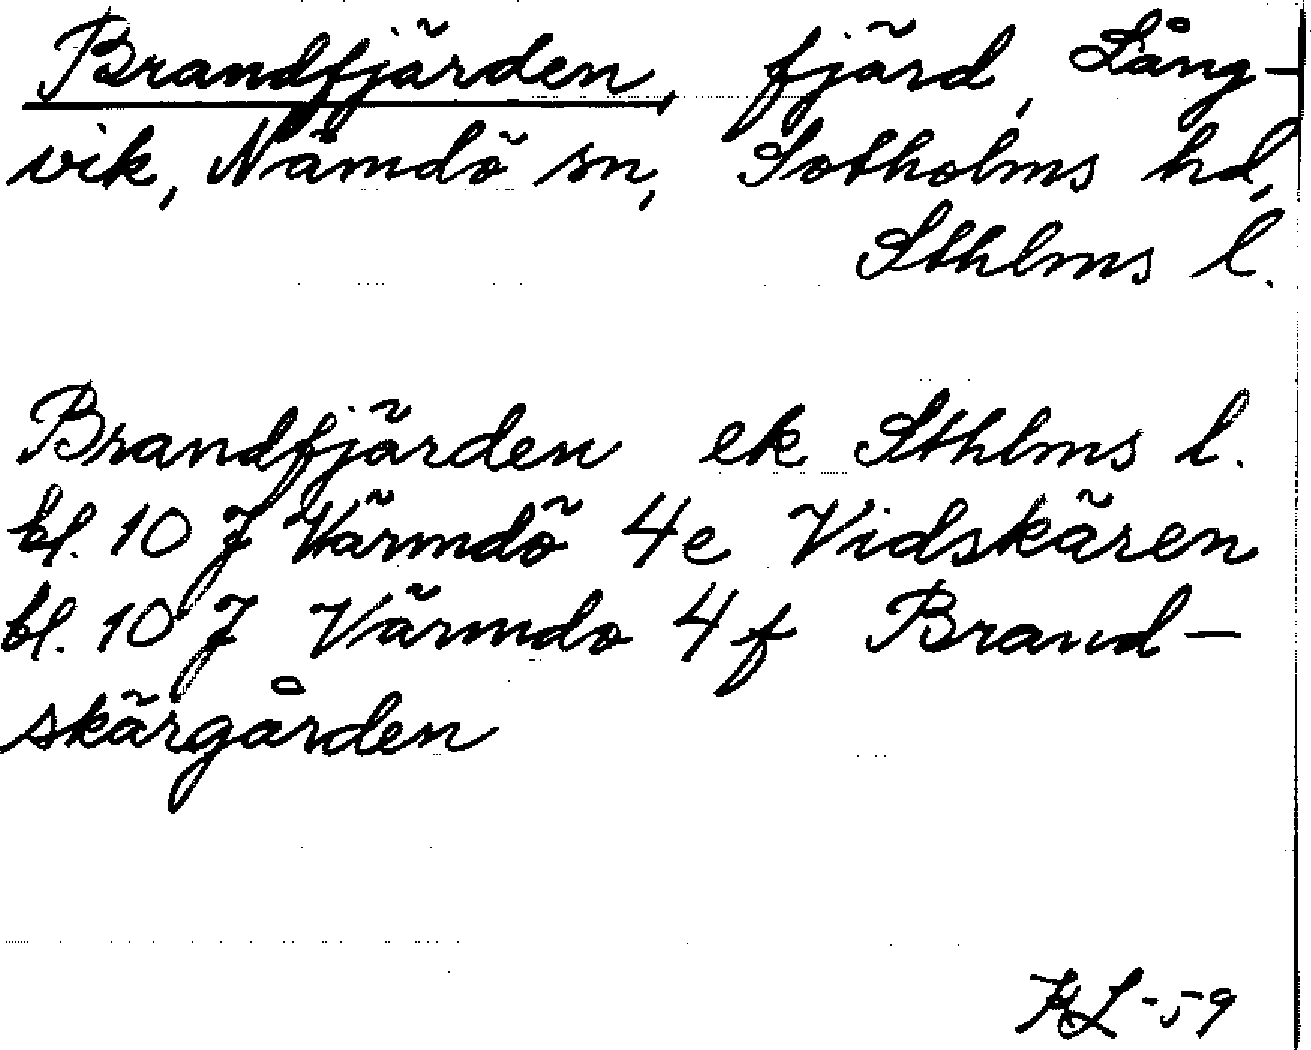 Brandfjärden, fjärd, Lång-
vik, Nämdö sn, Sotholms hd,
Sthlms l.
Brandfjärden ek Sthlms l.
bl. 10 J Värmdö 4e Vidskären
bl. 10 J Värmdo 4f Brand-
skärgården
KL-59